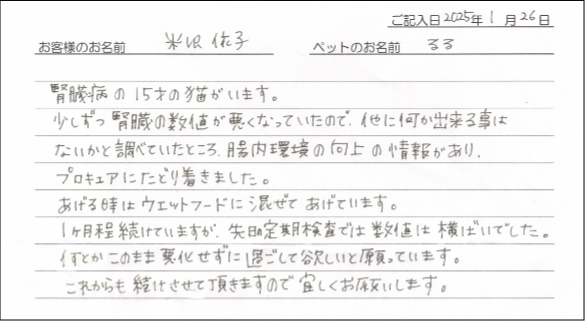 ご記入日 2025年 1月 26日
お客様のお名前 米沢 依子 ペットのお名前 るる
腎臓病の15才の猫がいます。
少しずつ腎臓の数値が悪くなっていたので、他に何か出来る事は
ないかと調べていたところ、腸内環境の向上の情報があり、
プロキュアにたどり着きました。
あげる時はウエットフードに混ぜてあげています。
1ヶ月程続けていますが、先日の定期検査では数値は横ばいでした。
何とかこのまま悪化せずに過ごして欲しいと願っています。
これからも続けさせて頂きますので宜しくお願いします。